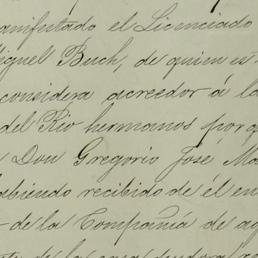 anifestado el Licenciado
iguel Buch, de quien es
considera acreedor á la
del Rio hermanos por q
Don Gregorio José Ma
abiendo recibido de él en
de la Compañía de ag